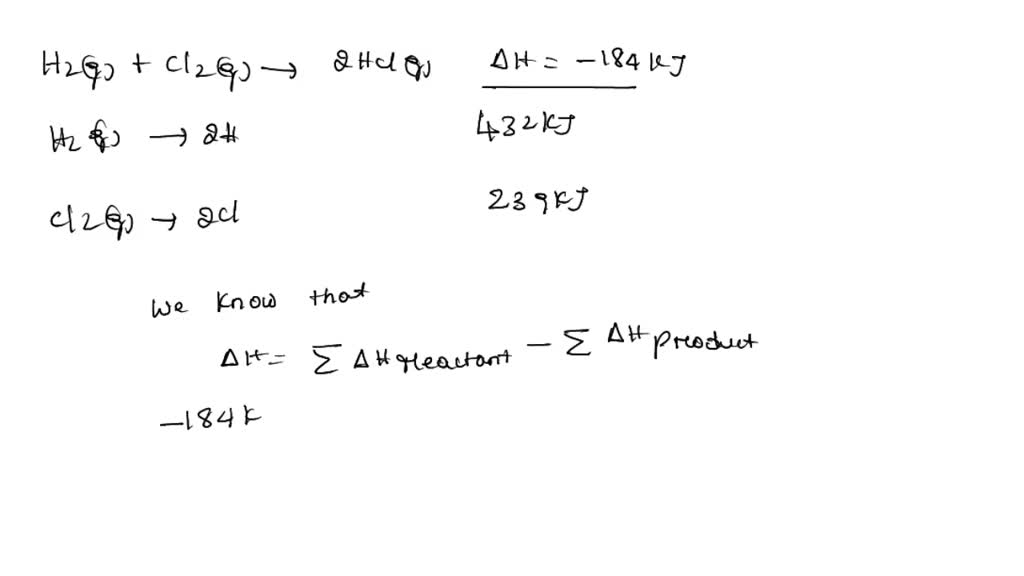 H2(g) + Cl2(g) → 2HCl(g) ΔH = -184 KJ
H2(g) → 2H 432KJ
Cl2(g) → 2Cl 239KJ
We know that
ΔH = Σ ΔH reactant - Σ ΔH product
-184 K